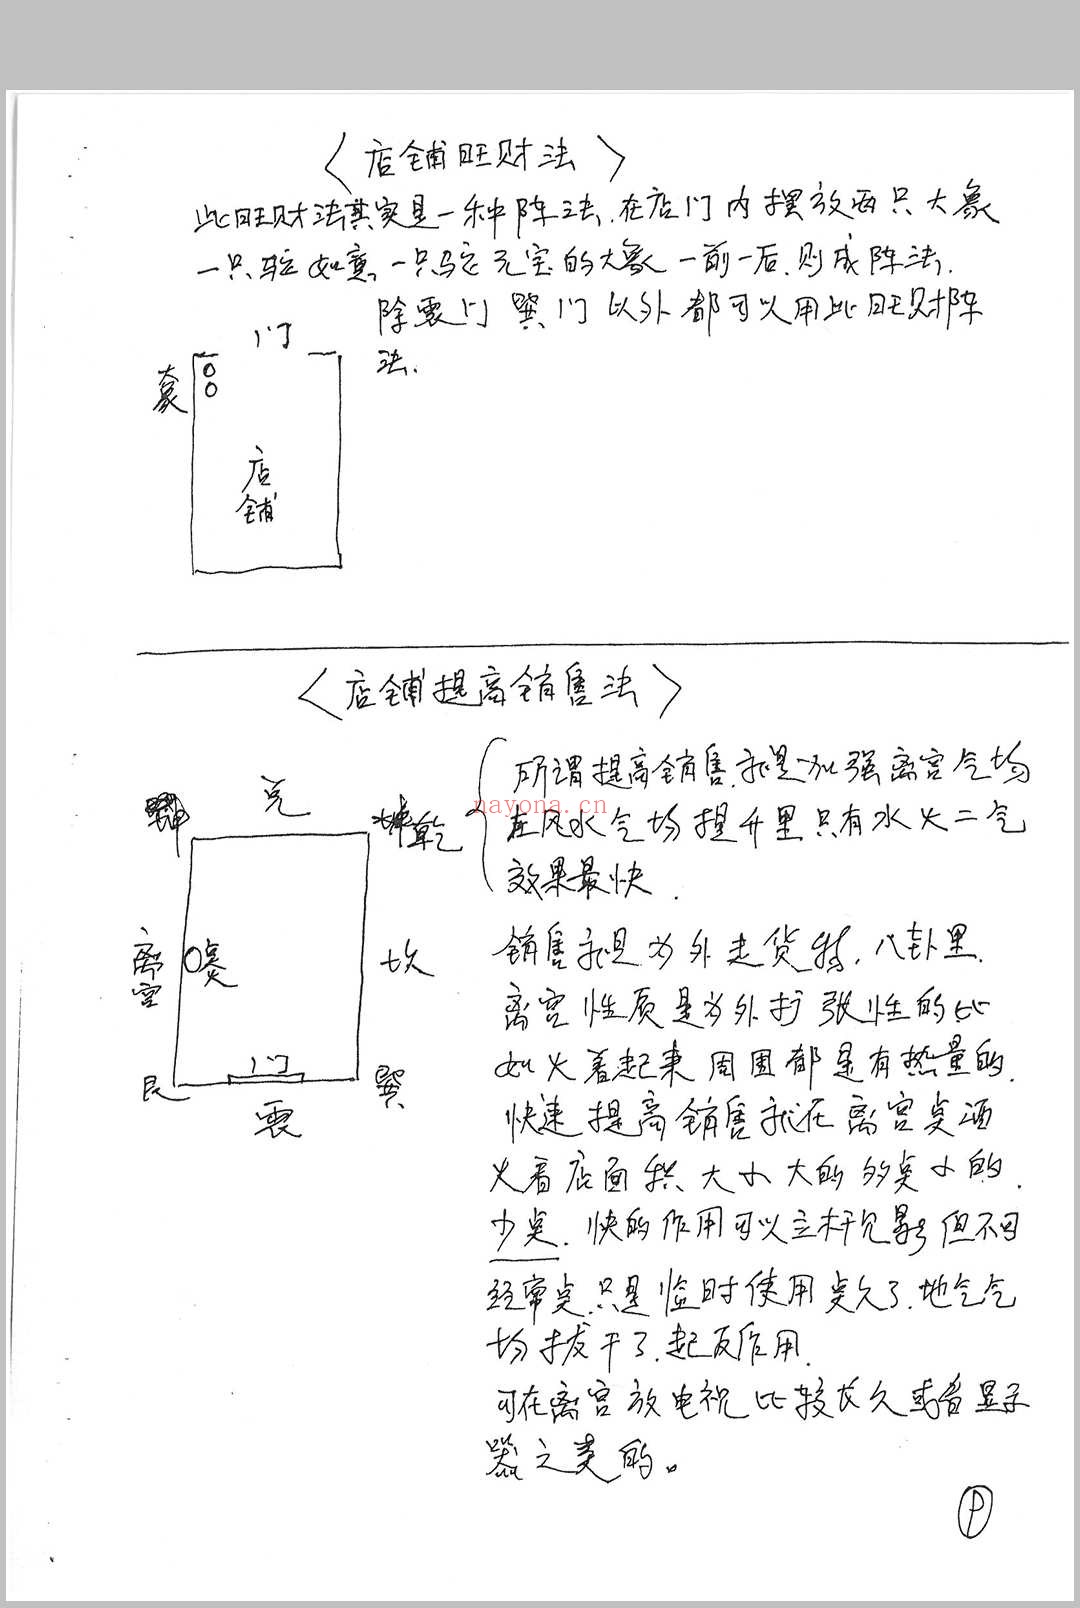 〈店铺旺财法〉
此旺财法其实是一种阵法.在店门内摆放两只大象
一只驼如意,一只驼元宝的大象一前一后.则成阵法.
除震门巽门以外都可以用此旺财阵
法.
门
大象
店
铺
〈店铺提高销售法〉
所谓提高销售.就是加强离宫气场
在风水气场提升里只有水火二气
效果最快.
nayona.cn
兑
乾
离宫
点火
坎
门
艮
巽
震
销售就是为外走货特,八卦里.
离宫性质是为外扩张性的比
如火着起来周围都是有热量的.
快速提高销售就在离宫点酒
火看店面积大小大的多点小的.
少点.快的作用可以立杆见影但不可
经常点.只是临时使用点久了.地气气
场拔干了.起反作用.
可在离宫放电视比较长久或者显示
器之类的。
P